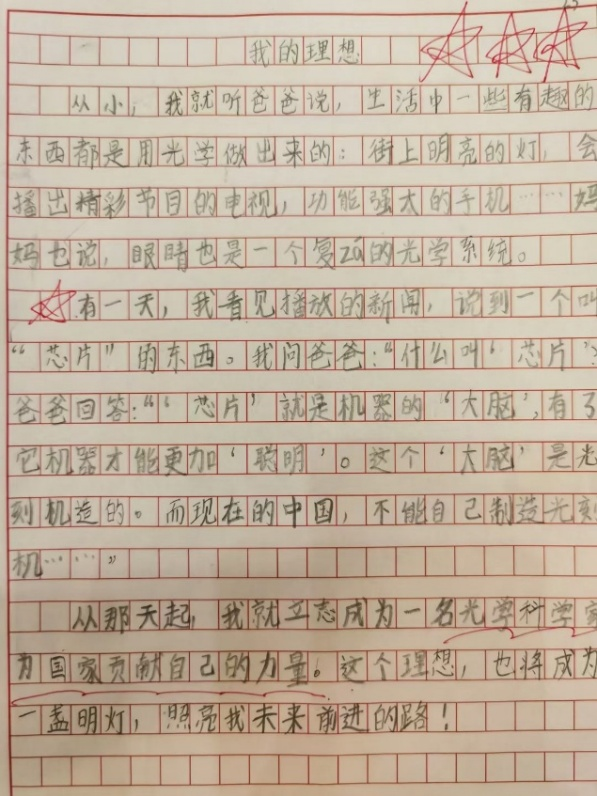 我的理想
从小，我就听爸爸说，生活中一些有趣的
东西都是用光学做出来的：街上明亮的灯，会
播出精彩节目的电视，功能强大的手机……妈
妈也说，眼睛也是一个复zá的光学系统。
有一天，我看见播放的新闻，说到一个叫
“芯片”的东西。我问爸爸：“什么叫‘芯片’？
爸爸回答：“‘芯片’就是机器的‘大脑’，有了
它机器才能更加‘聪明’。这个‘大脑’是光
刻机造的。而现在的中国，不能自己制造光刻
机……”
从那天起，我就立志成为一名光学科学家
为国家贡献自己的力量。这个理想，也将成为
一盏明灯，照亮我未来前进的路！